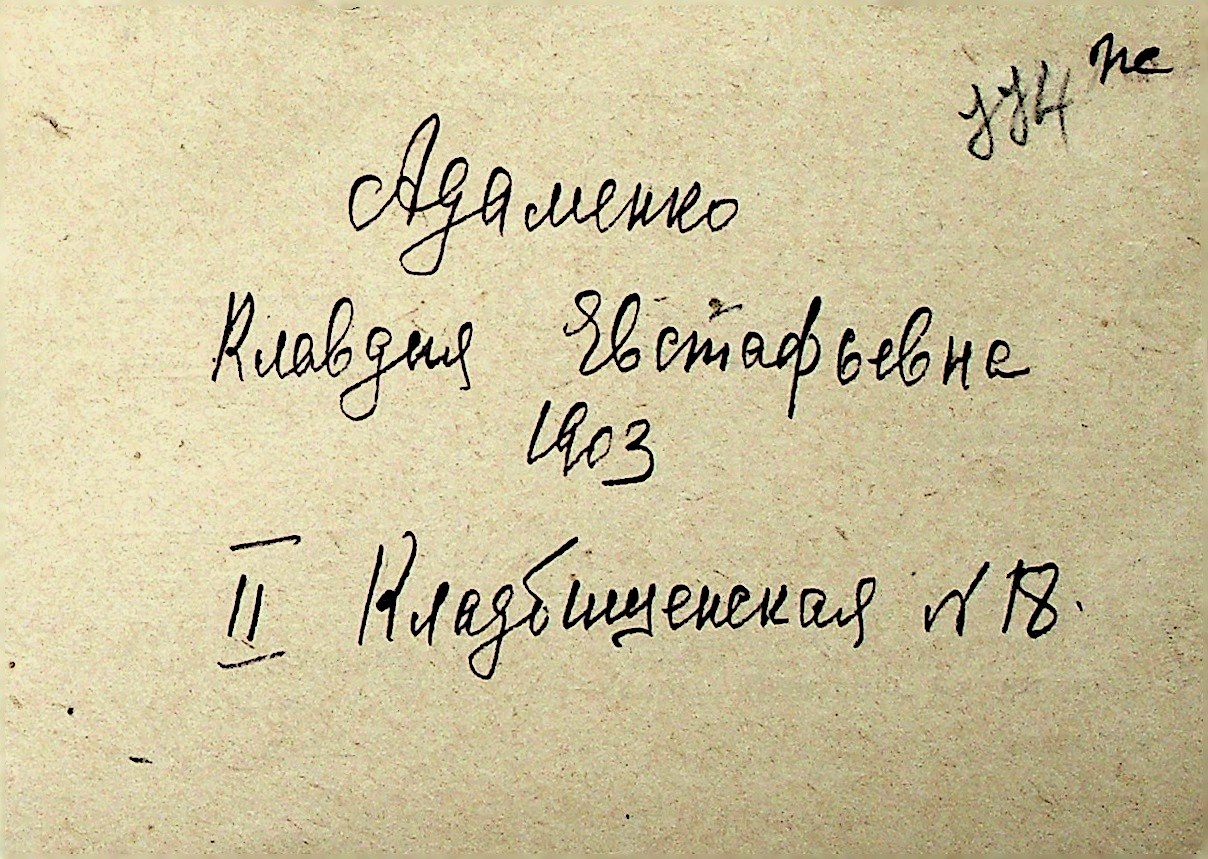 Адаменко
Клавдия Евстафьевна
1903
II Кладбищенская N 18.